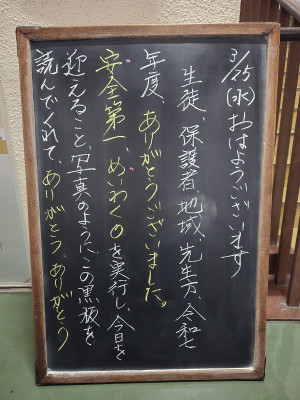 3/25(水)おはようございます
生徒、保護者、地域、先生方、令和七
年度、ありがとうございました。
安全第一、めいわく0を実行し、今日を
迎えること、写真のように、この黒板を
読んでくれて、ありがとう、ありがとう